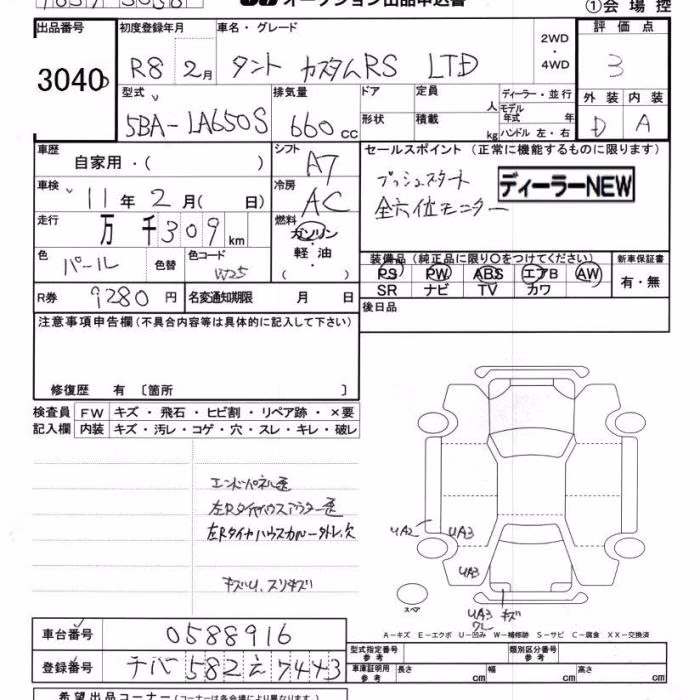 オークション出品申込書
①会場控
出品番号 初度登録年月 車名・グレード 2WD・4WD 評価点
3040 R8 2月 タント カスタムRS LTD 3
型式 排気量 ドア 定員 人 ディーラー・並行 外装 内装
5BA-LA650S 660cc 形状 積載 kg モデル年式 年 ハンドル 左・右 D A
車歴 自家用・( ) シフト A7 セールスポイント (正常に機能するものに限ります)
車検 11年2月( 日) 冷房 AC プッシュスタート ディーラーNEW
全方位モニター
走行 万 千309km 燃料 ガソリン・軽油・( )
色 パール 色替 色コード W25 装備品(純正品に限り○をつけてください) 新車保証書
PS PW ABS エアB AW 有・無
SR ナビ TV カワ
R券 9280円 名変通知期限 月 日 後日品
注意事項申告欄(不具合内容等は具体的に記入して下さい)
修復歴 有 〔箇所 〕
検査員 FW キズ・飛石・ヒビ割・リペア跡・×要
記入欄 内装 キズ・汚レ・コゲ・穴・スレ・キレ・破レ
エンドパネル
左Rタイヤハウスアウター
左Rタイヤハウスカバー外レ、欠
キズU、スリキズ
UA2 UA3
UA3
UA3 キズ
ワレ
スペア
A-キズ E-エクボ U-凹み W-補修跡 S-サビ C-腐食 XX-交換済
車台番号 0588916 型式指定番号 参考 類別区分番号 参考
登録番号 チバ 582 え 7443 車庫証明用 参考 長さ cm 幅 cm 高さ cm
希望出品コーナー(コーナーは各会場により異なります)